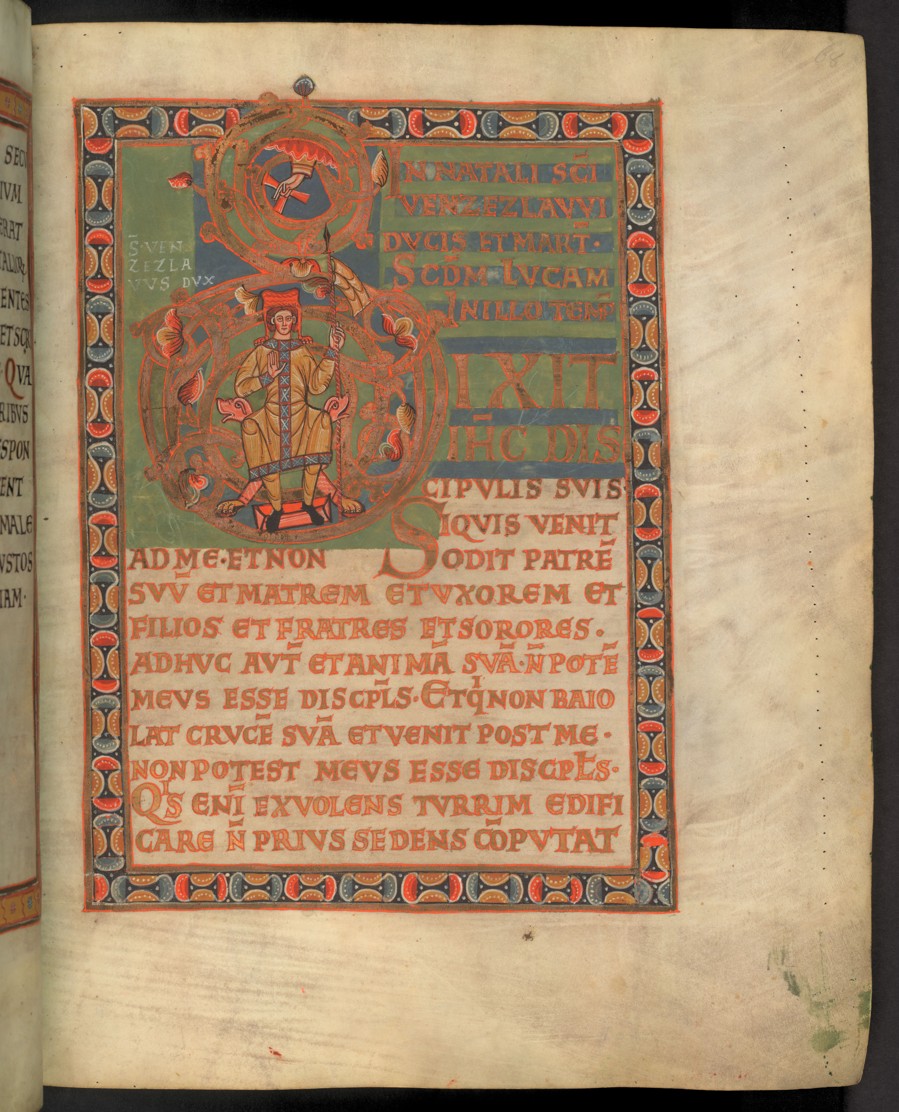 SECV
IVM
ERAT
TALIOR
ENTES
ET SCR
QVA
RIBVS
SPON
ENT
MALE
VSTOS
IAM·
68
S̄·VEN
ZEZLA
VVS DVX
IN NATALI SC̄I
VENZEZLAVVI
DVCIS ET MART̄·
SCD̄M LVCAM
IN ILLO TEMP̄
DIXIT
IH̄C DIS
CIPVLIS SVIS
SIQVIS VENIT
AD ME·ET NON ODIT PATRĒ
SVV̄ ET MATREM ET VXOREM ET
FILIOS ET FRATRES ET SORORES·
ADHVC AVT̄ ET ANIMĀ SVĀ·N̄ POTĒ
MEVS ESSE DISCPL̄S·ET Qͥ NON BAIO
LAT CRVCĒ SVĀ ET VENIT POST ME·
NON POTEST MEVS ESSE DISCPL̄S·
QͥS ENĪ EX VOLENS TVRRIM EDIFI
CARE N̄ PRIVS SEDENS CŌPVTAT